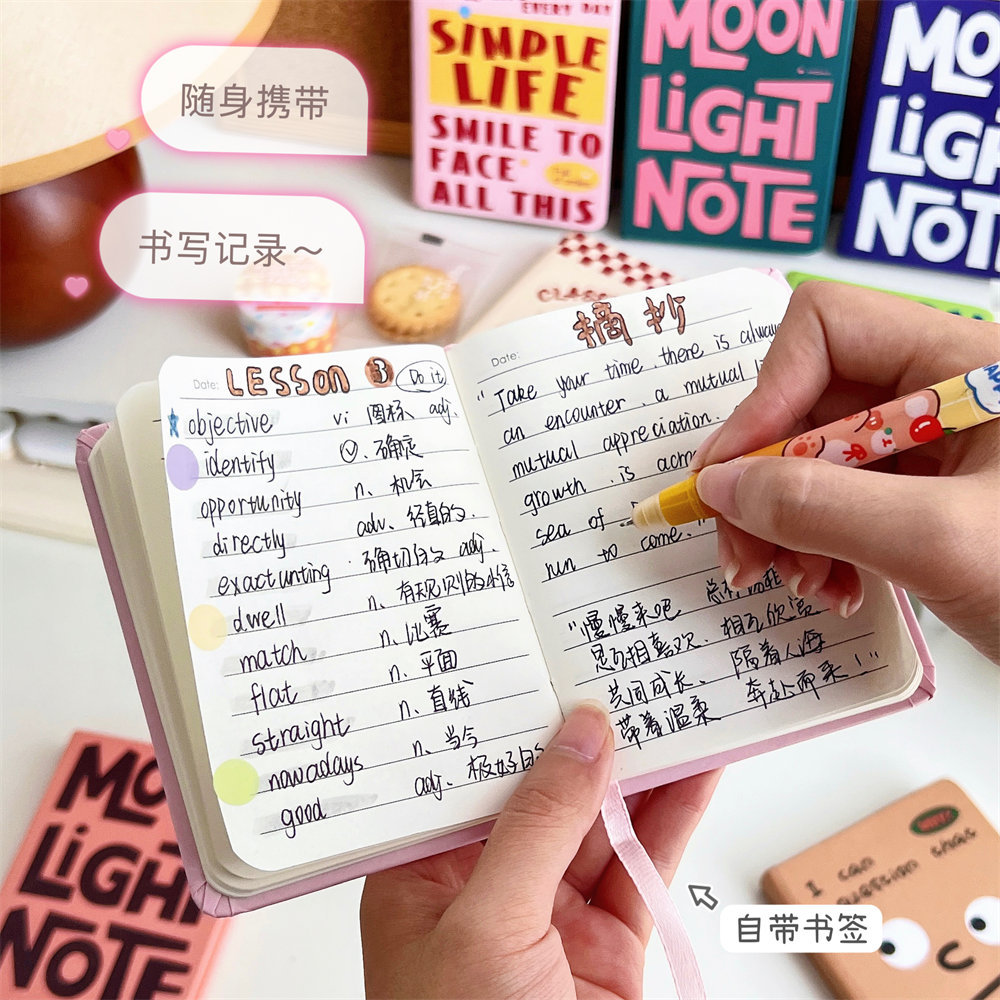 随身携带
书写记录～
EVERY DAY
SIMPLE
LIFE
SMILE TO
FACE
ALL THIS
MOON
LIGHT
NOTE
MOO
LIGH
NOT
CLASS
Date: LESSON 3 Do it
objective vi 图标 adj.
identify 确定
opportunity n. 机会
directly adv. 径直的.
exactunting 确切的 adj.
dwell n.
match n. 比赛
flat n. 平面
straight n. 直线
nowadays n. 当今
good adj. 极好的
Date: 摘抄
"Take your time. there is always
an encounter. a mutual
mutual appreciation.
growth. is
sea of
run to come.
"慢慢来吧
是互相喜欢. 相互欣赏
共同成长. 隔着人海
带着温柔 奔赴而来!"
MOO
LIGH
NOTE
I can
question
自带书签